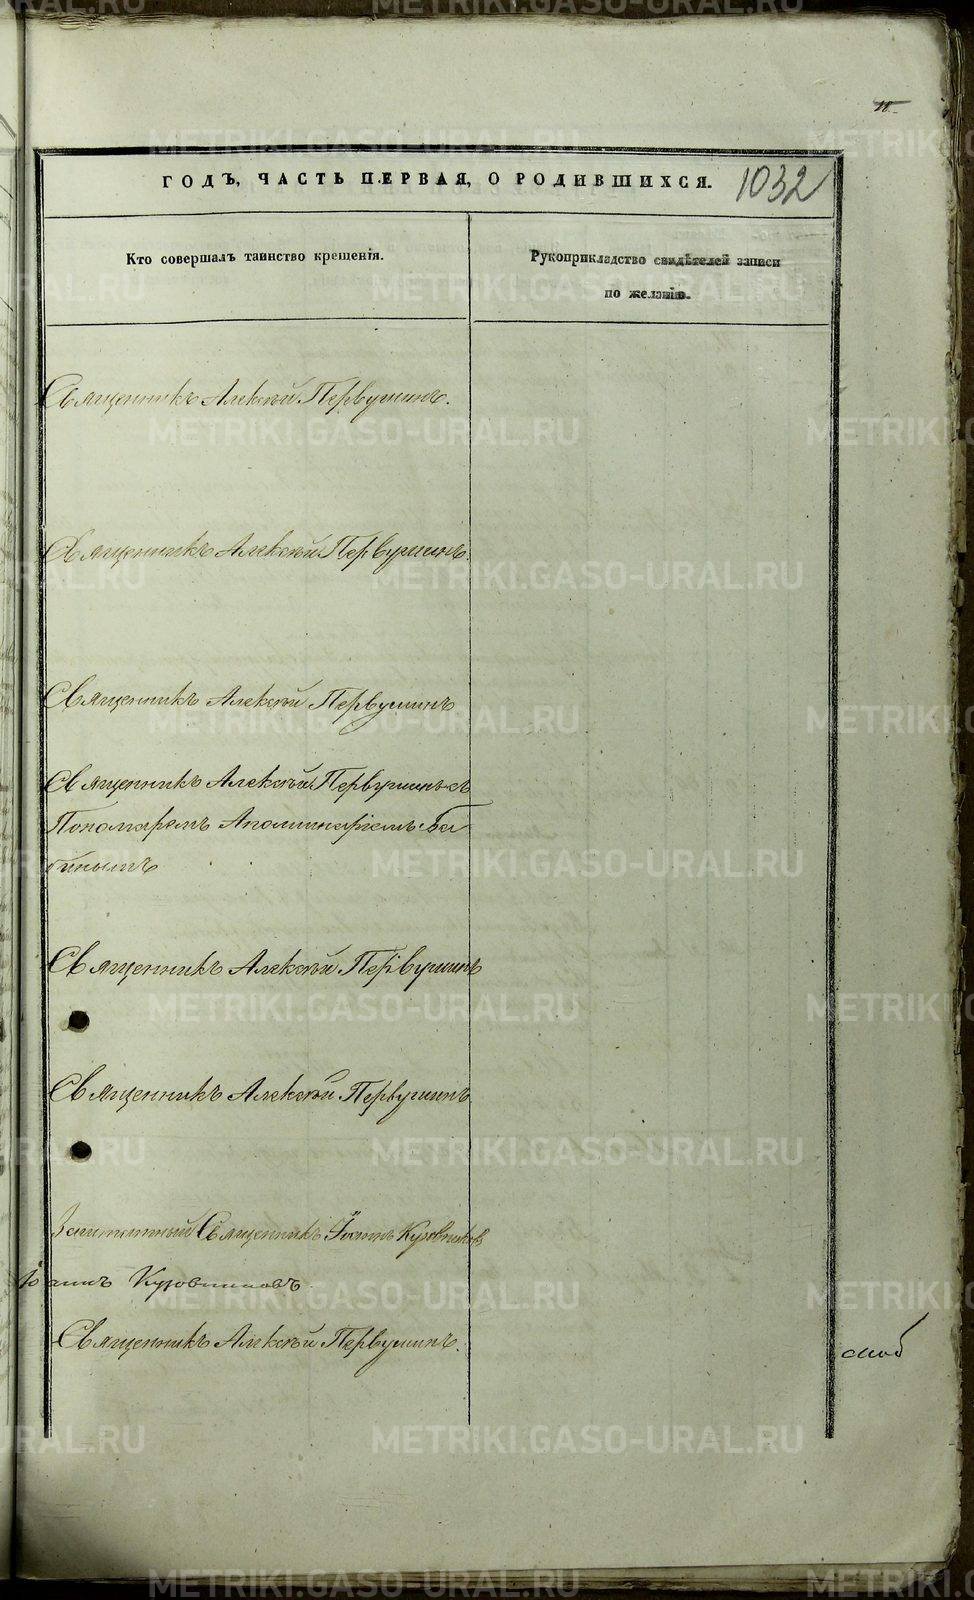 ГОДЪ, ЧАСТЬ ПЕРВАЯ, О РОДИВШИХСЯ. 1032
Кто совершалъ таинство крещенія.
Рукоприкладство свидѣтелей записи
по желанію.
Священникъ Алексѣй Первушинъ.
Священникъ Алексѣй Первушинъ.
Священникъ Алексѣй Первушинъ
Священникъ Алексѣй Первушинъ съ
Пономаремъ Аполлинаріемъ Ба
бинымъ
Священникъ Алексѣй Первушинъ
Священникъ Алексѣй Первушинъ
Заштатный Священникъ Іоаннъ Кузовниковъ
Іоаннъ Кузовниковъ
Священникъ Алексѣй Первушинъ.
METRIKI.GASO-URAL.RU